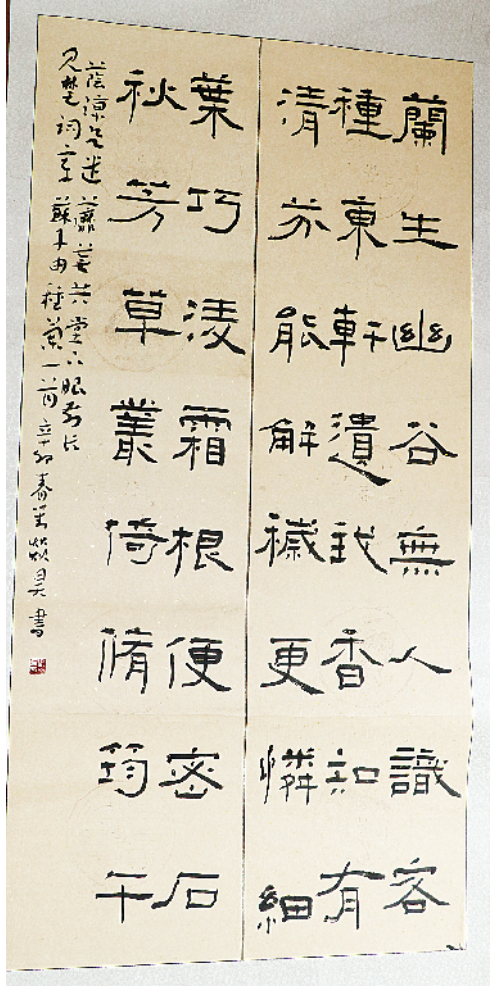 蘭生幽谷無人識客
種東軒遺我香知有
清芬能解穢更憐細
葉巧淩霜根便密石
秋芳草叢倚脩筠千
蔭涼先遣蘼蕪共堂下眼前長
見楚詞章 蘇子由種蘭一首 辛卯春 吳 書